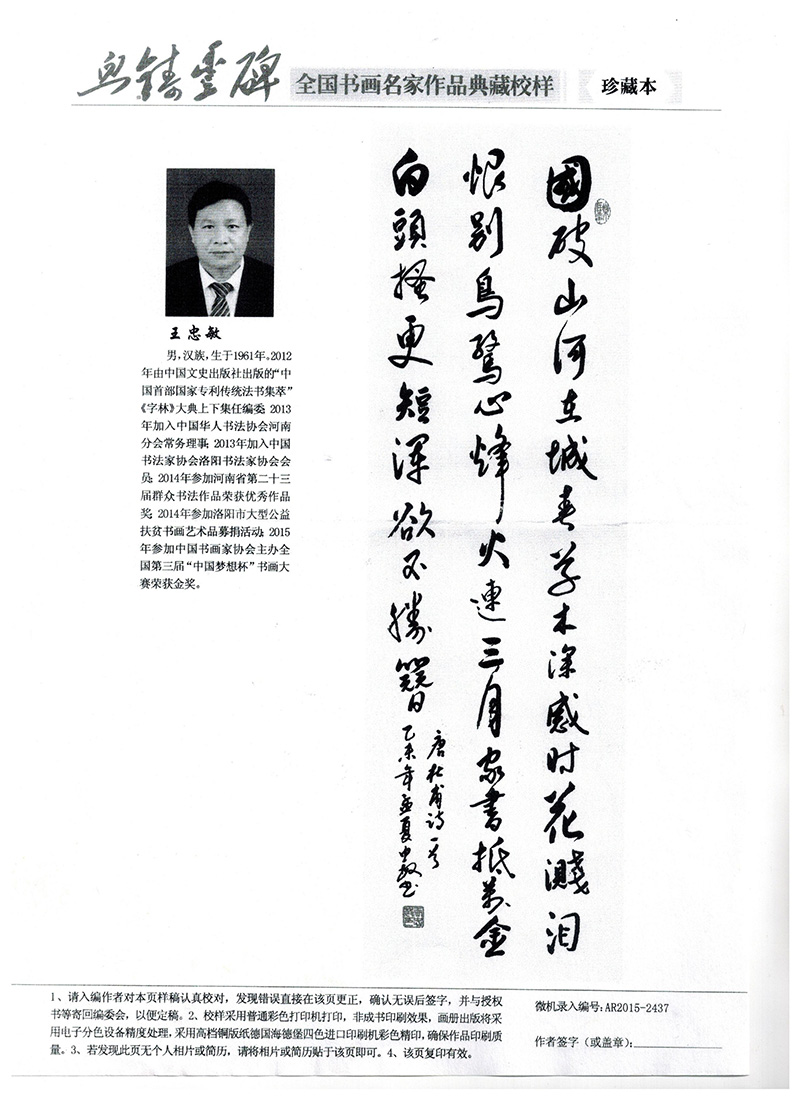 全国书画名家作品典藏校样
珍藏本
國破山河在城春草木深感时花溅泪
恨别鸟驚心烽火連三月家書抵萬金
白頭搔更短渾欲不勝簪
唐杜甫诗一首
乙未年孟夏忠敏书
王忠敏
男，汉族，生于1961年。2012
年由中国文史出版社出版的“中
国首部国家专利传统法书集萃”
《字林》大典上下集任编委；2013
年加入中国华人书法协会河南
分会常务理事；2013年加入中国
书法家协会洛阳书法家协会会
员；2014年参加河南省第二十三
届群众书法作品荣获优秀作品
奖；2014年参加洛阳市大型公益
扶贫书画艺术品募捐活动；2015
年参加中国书画家协会主办全
国第三届“中国梦想杯”书画大
赛荣获金奖。
1、请入编作者对本页样稿认真校对，发现错误直接在该页更正，确认无误后签字，并与授权
书等寄回编委会，以便定稿。2、校样采用普通彩色打印机打印，非成书印刷效果，画册出版将采
用电子分色设备精度处理，采用高档铜版纸德国海德堡四色进口印刷机彩色精印，确保作品印刷质
量。3、若发现此页无个人相片或简历，请将相片或简历贴于该页即可。4、该页复印有效。
微机录入编号：AR2015-2437
作者签字（或盖章）：